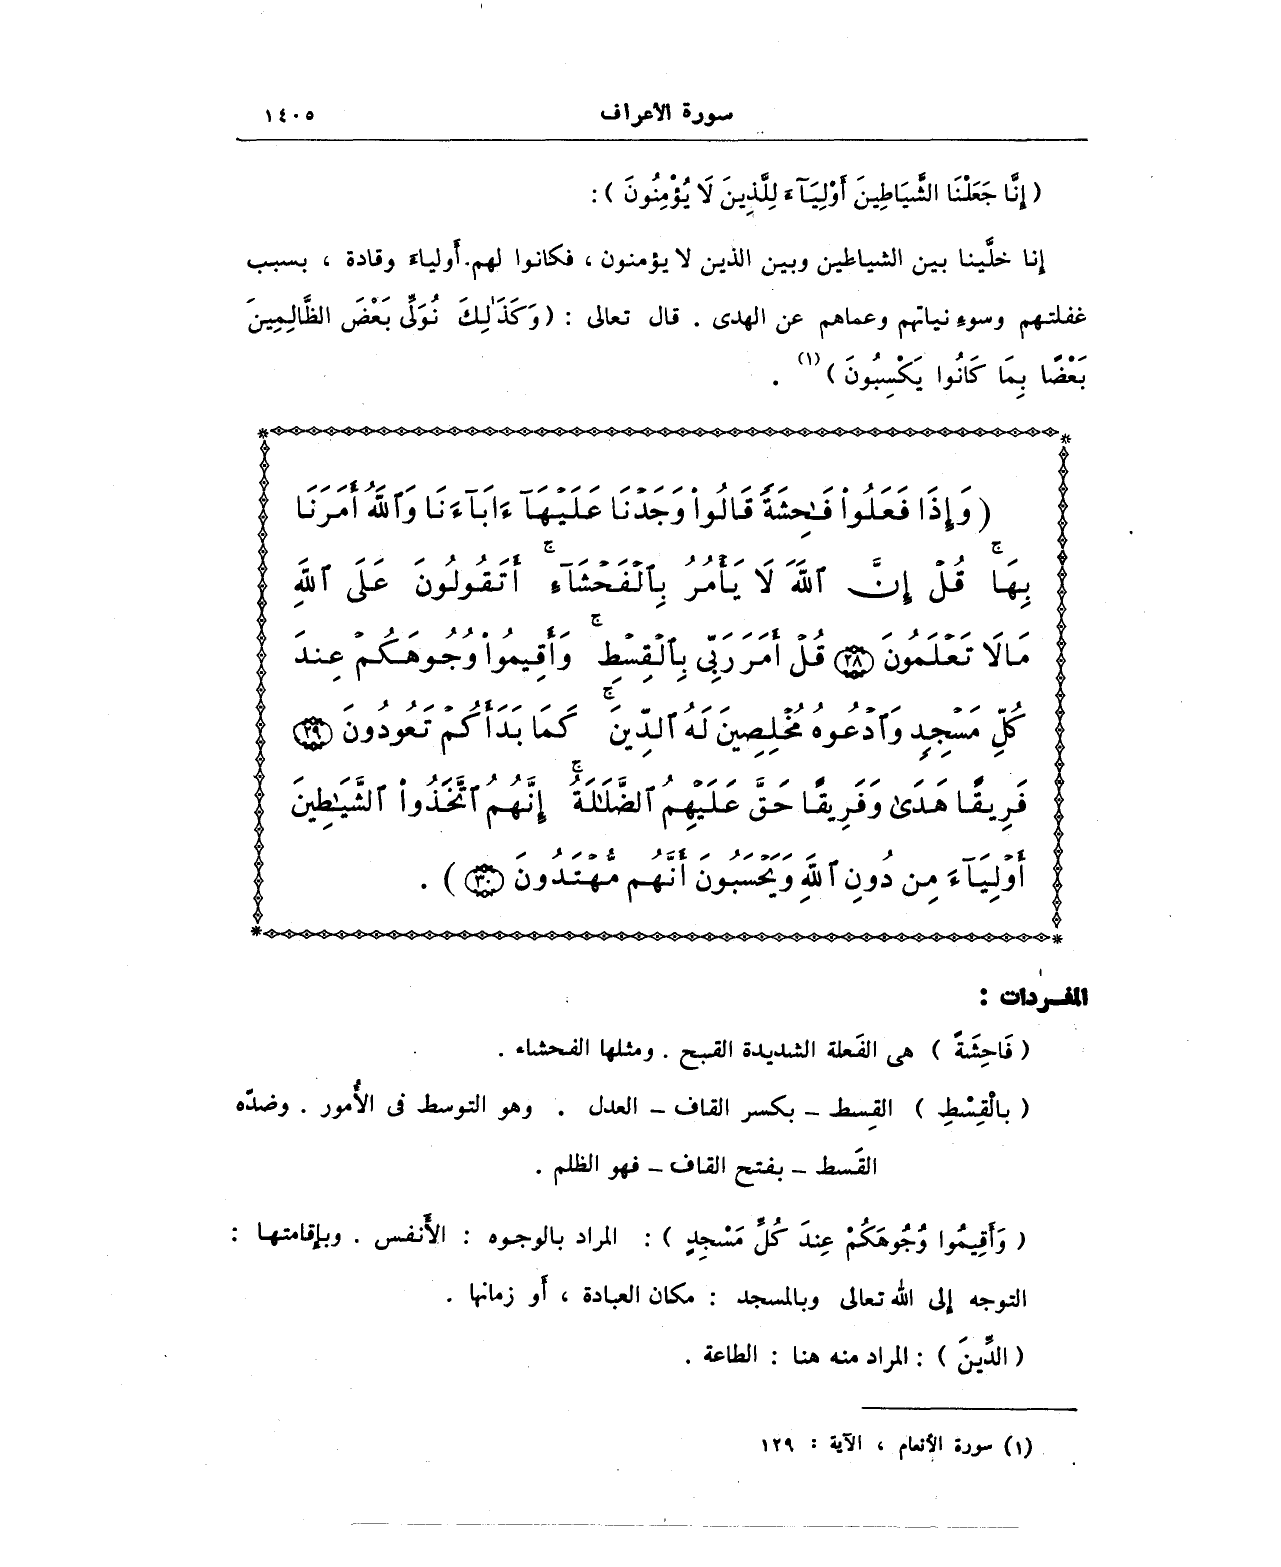 سورة الأعراف ١٤٠٥
( إِنَّا جَعَلْنَا الشَّيَاطِينَ أَوْلِيَآءَ لِلَّذِينَ لَا يُؤْمِنُونَ ) :
إنا خلَّينا بين الشياطين وبين الذين لا يؤمنون ، فكانوا لهم أولياء وقادة ، بسبب
غفلتهم وسوء نياتهم وعماهم عن الهدى . قال تعالى : ( وَكَذَٰلِكَ نُوَلِّى بَعْضَ الظَّالِمِينَ
بَعْضًا بِمَا كَانُوا يَكْسِبُونَ )(١) .
( وَإِذَا فَعَلُوا۟ فَـٰحِشَةً قَالُوا۟ وَجَدْنَا عَلَيْهَآ ءَابَآءَنَا وَٱللَّهُ أَمَرَنَا
بِهَا ۗ قُلْ إِنَّ ٱللَّهَ لَا يَأْمُرُ بِٱلْفَحْشَآءِ ۖ أَتَقُولُونَ عَلَى ٱللَّهِ
مَالَا تَعْلَمُونَ ﴿٢٨﴾ قُلْ أَمَرَ رَبِّى بِٱلْقِسْطِ ۖ وَأَقِيمُوا۟ وُجُوهَكُمْ عِندَ
كُلِّ مَسْجِدٍ وَٱدْعُوهُ مُخْلِصِينَ لَهُ ٱلدِّينَ ۚ كَمَا بَدَأَكُمْ تَعُودُونَ ﴿٢٩﴾
فَرِيقًا هَدَىٰ وَفَرِيقًا حَقَّ عَلَيْهِمُ ٱلضَّلَـٰلَةُ ۗ إِنَّهُمُ ٱتَّخَذُوا۟ ٱلشَّيَـٰطِينَ
أَوْلِيَآءَ مِن دُونِ ٱللَّهِ وَيَحْسَبُونَ أَنَّهُم مُّهْتَدُونَ ﴿٣٠﴾ ) .
المفردات :
( فَاحِشَةً ) هى الفَعلة الشديدة القبح . ومثلها الفحشاء .
( بِالْقِسْطِ ) القِسط – بكسر القاف – العدل . وهو التوسط فى الأُمور . وضدّه
القَسط – بفتح القاف – فهو الظلم .
( وَأَقِيمُوا وُجُوهَكُمْ عِندَ كُلِّ مَسْجِدٍ ) : المراد بالوجوه : الأَنفس . وبإقامتها :
التوجه إلى الله تعالى وبالمسجد : مكان العبادة ، أَو زمانها .
( الدِّينَ ) : المراد منه هنا : الطاعة .
(١) سورة الأنعام ، الآية : ١٢٩